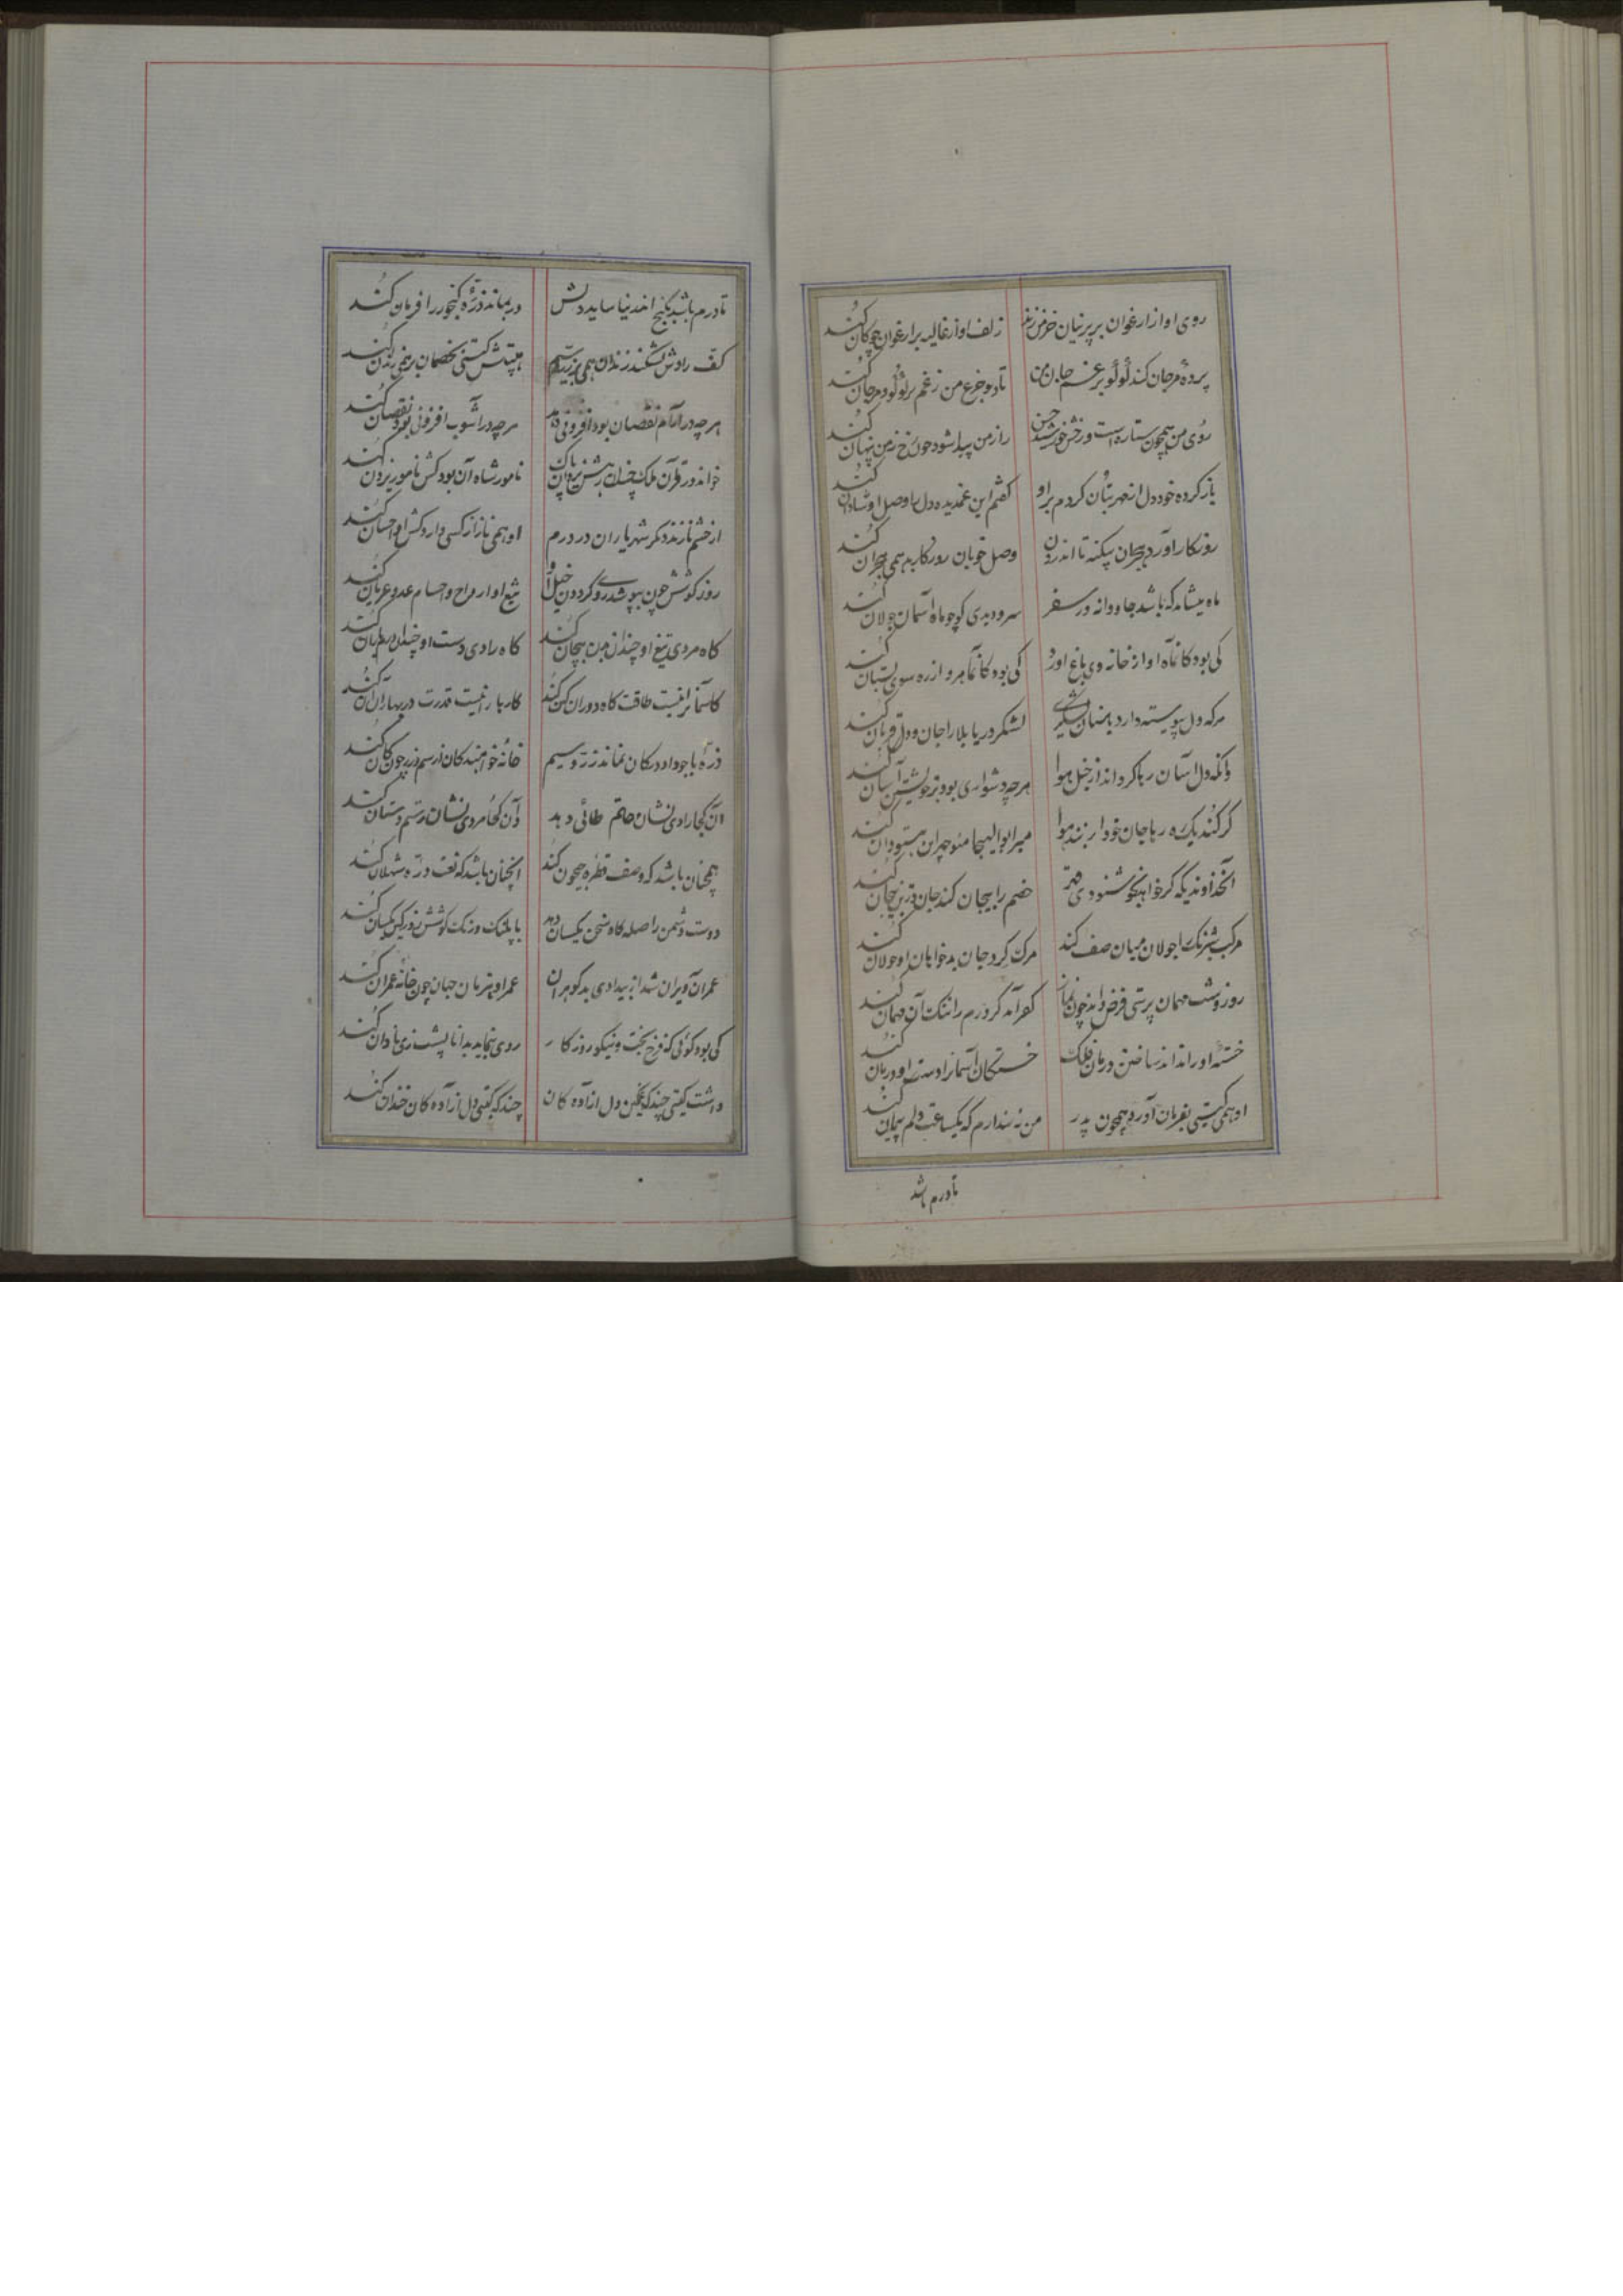 روی او از ارغوان بر پرنیان خرمن زند زلف او از غالیه بر ارغوان چوکان کند
پردهٔ مرجان کند لؤلؤ بر غم جان من تا دو جزع من ز غم پر لؤلؤ و مرجان کند
روی من همچون ستاره است و رخش خورشید حسن راز من پیدا شود چون رخ ز من پنهان کند
باز کرده خود دل از مهر بتان کردم بر او کفتم این غمدیده دل را وصل او شادان کند
روزکار آورد هجران وصل خوبان روزکار بد همی هجران کند
ماه باشد جاودانه در سفر سرو دیدی کو چو ماه آسمان جولان کند
کی بود کان ماه او از خانه وی باغ آورد کی بود کان سرو از ره سوی بستان کند
هر که دل پیوسته دارد لشکر در یا بلا را جان و دل قربان کند
وانکه دل آسان رها کرداند از خیل هوا هر چه دشواری بود بر خویشتن آسان کند
کر کند یک ره رها جان خود از بند هوا میر ابوالهیجا منوچهر ابن وهسودان کند
آن خداوندیکه کر خواهد خصم را بیجان کند جان در تن بیجان کند
مرکب شبرنک را جولان میان صف کند مرک کرد جان بدخواهان او جولان کند
روز و شب مهمان پرستی فرض داند چون نماز کفر آید کر درم را تنک آن مهمان کند
خستهٔ او را نداند ساختن درمان فلک خستکان آسمانرا دست او درمان کند
او همی کیتی بفرمان آورد همچون پدر من نپندارم که یکساعت درم پیمان کند
تا درم باشد
تا درم باشد بکنج اندر نیاساید دلش ور بماند ذرهٔ کنجور را فرمان کند
کف رادش بشکند زندان همی بر زر و سیم هیبتش کیتی بخصمان بر همی زندان کند
هر چه در آرام نقصان بود افزونی دهد هر چه در آشوب افزونی بود نقصان کند
خواند در قرآن ملک یزدان پاک نامور شاه آن بود کش نامور یزدان کند
از خشم نازند دیکر شهریاران در درم او همی ناز از کسی دارد کش او احسان کند
روز کوشش چون بپوشد روی کردون خیل او تیغ او ارواح و اجسام عدو عریان کند
کاه مردی تیغ او چندان بیجان کند کاه رادی دست او چندان
کاسمانرا نیست طاقت کاه دوران کن کند کار با را نیست قدرت در بهاران آن کند
ذرهٔ با جود او در کان نماند زر و سیم خانهٔ خواهندکان از سیم و زر چون کان کند
آن کجا رادی نشان حاتم طائی دهد وان کجا مردی نشان رستم دستان کند
همچنان باشد که وصف قطره جیحون کند آنچنان باشد که نعت ذره ثهلان کند
دوست و دشمن را صله کاه سخن یکسان دهد با پلنک و رنک کوشش روز کین یکسان کند
عمران ویران شد از بیدادی بدکوهران عمر او هزمان جهان چون خانهٔ عمران کند
کی بود کوئی که فرخ بخت و نیکو روزکار روی بنماید بدانا پشت زی نادان کند
داشت کیتی چند که غمکین دل آزاده کان چند که کیتی دل آزاده کان خندان کند